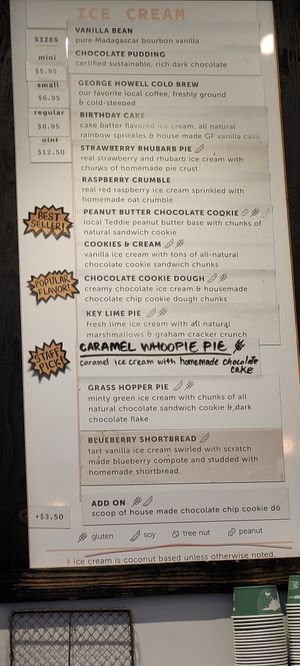 ICE CREAM
SIZES
mini
$5.95
small
$6.95
regular
$8.95
pint
$12.50
VANILLA BEAN
pure Madagascar bourbon vanilla
CHOCOLATE PUDDING
certified sustainable, rich dark chocolate
GEORGE HOWELL COLD BREW
our favorite local coffee, freshly ground
& cold-steeped
BIRTHDAY CAKE
cake batter flavored ice cream, all natural
rainbow sprinkles & house made GF vanilla cake
STRAWBERRY RHUBARB PIE
real strawberry and rhubarb ice cream with
chunks of homemade pie crust
RASPBERRY CRUMBLE
real red raspberry ice cream sprinkled with
homemade oat crumble
BEST
SELLER!
PEANUT BUTTER CHOCOLATE COOKIE
local Teddie peanut butter base with chunks of
natural sandwich cookie
COOKIES & CREAM
vanilla ice cream with tons of all-natural
chocolate cookie sandwich chunks
POPULAR
FLAVOR!
CHOCOLATE COOKIE DOUGH
creamy chocolate ice cream & housemade
chocolate chip cookie dough chunks
KEY LIME PIE
fresh lime ice cream with all natural
marshmallows & graham cracker crunch
STAFF
PICK
CARAMEL WHOOPIE PIE
caramel ice cream with homemade chocolate
cake
GRASS HOPPER PIE
minty green ice cream with chunks of all
natural chocolate sandwich cookie & dark
chocolate flake
BLUEBERRY SHORTBREAD
tart vanilla ice cream swirled with scratch
made blueberry compote and studded with
homemade shortbread
+$3.50
ADD ON
scoop of house made chocolate chip cookie dö
gluten soy tree nut peanut
Ice cream is coconut based unless otherwise noted.